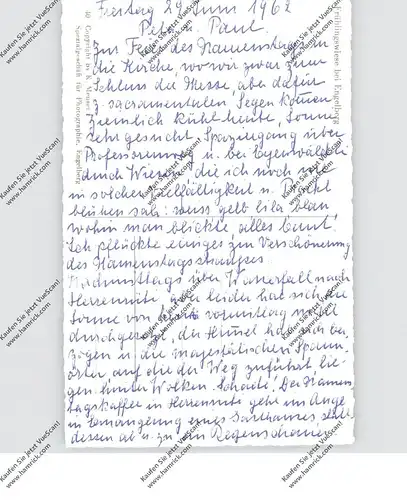 Freitag 29 Juni 1962
Peter. Paul.
Zur Feier des Namenstages in
die Kirche, wo wir zwar zum
Schluss die Messe, aber dafür
z. sacramentalen Segen kommen
Ziemlich kühl heute, Sonne
sehr gesucht, Spaziergang über
Professorenweg u. bei Eyenwäldli
durch Wiesen, die ich noch nie
in solcher Vielfältigkeit u. Pracht
blühen sah: weiss gelb lila blau
wohin man blickte, alles bunt.
Ich pflückte einiges zur Verschönerung
des Namenstagsstrausses
Nachmittags über Wasserfall nach
Herrenrüti. Aber leider hat sich die
Sonne von heute vormittag nicht
durchgesetzt, der Himmel hat sich be-
zogen u. die majestätischen Spann-
örter auf die der Weg zuführt lie-
gen hinter Wolken. Schade! Der Namens-
tagskaffee in Herrenrüti geht im Auge
in Ermangelung eines Gasthauses
dessen ab u. zu ein Regenschauer
Frühlingswiese bei Engelberg
Copyright by K. Meuser
Spezialgeschäft für Photographie, Engelberg
Kaufen Sie jetzt VueScan!
www.hamrick.com